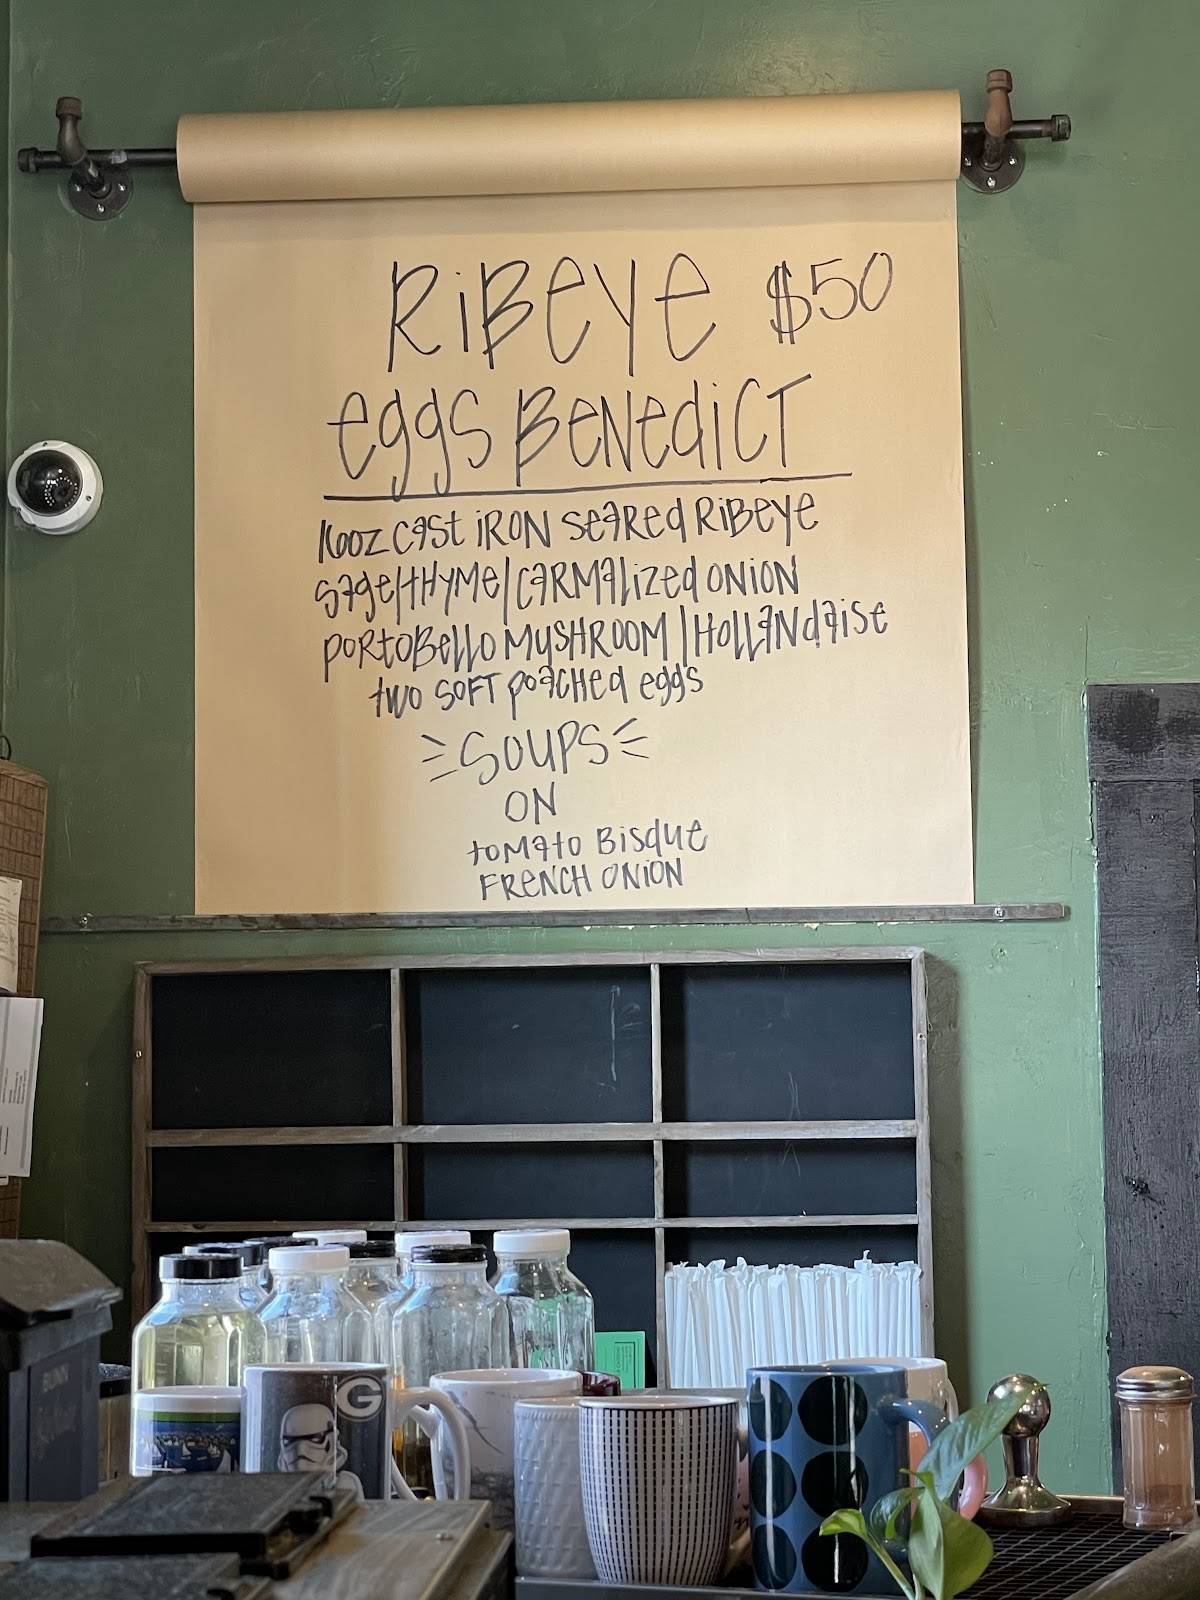 RiBeye $50
eggs BeNedicT
16oz cast iRON seaRed RiBeye
sage/tHyMe/caRMalized oNiON
poRtoBello MusHROOM | HollaNdaise
two soFT poacHed eggs
SOUPS
ON
toMato Bisque
FReNCH ONiON
G
BUNN